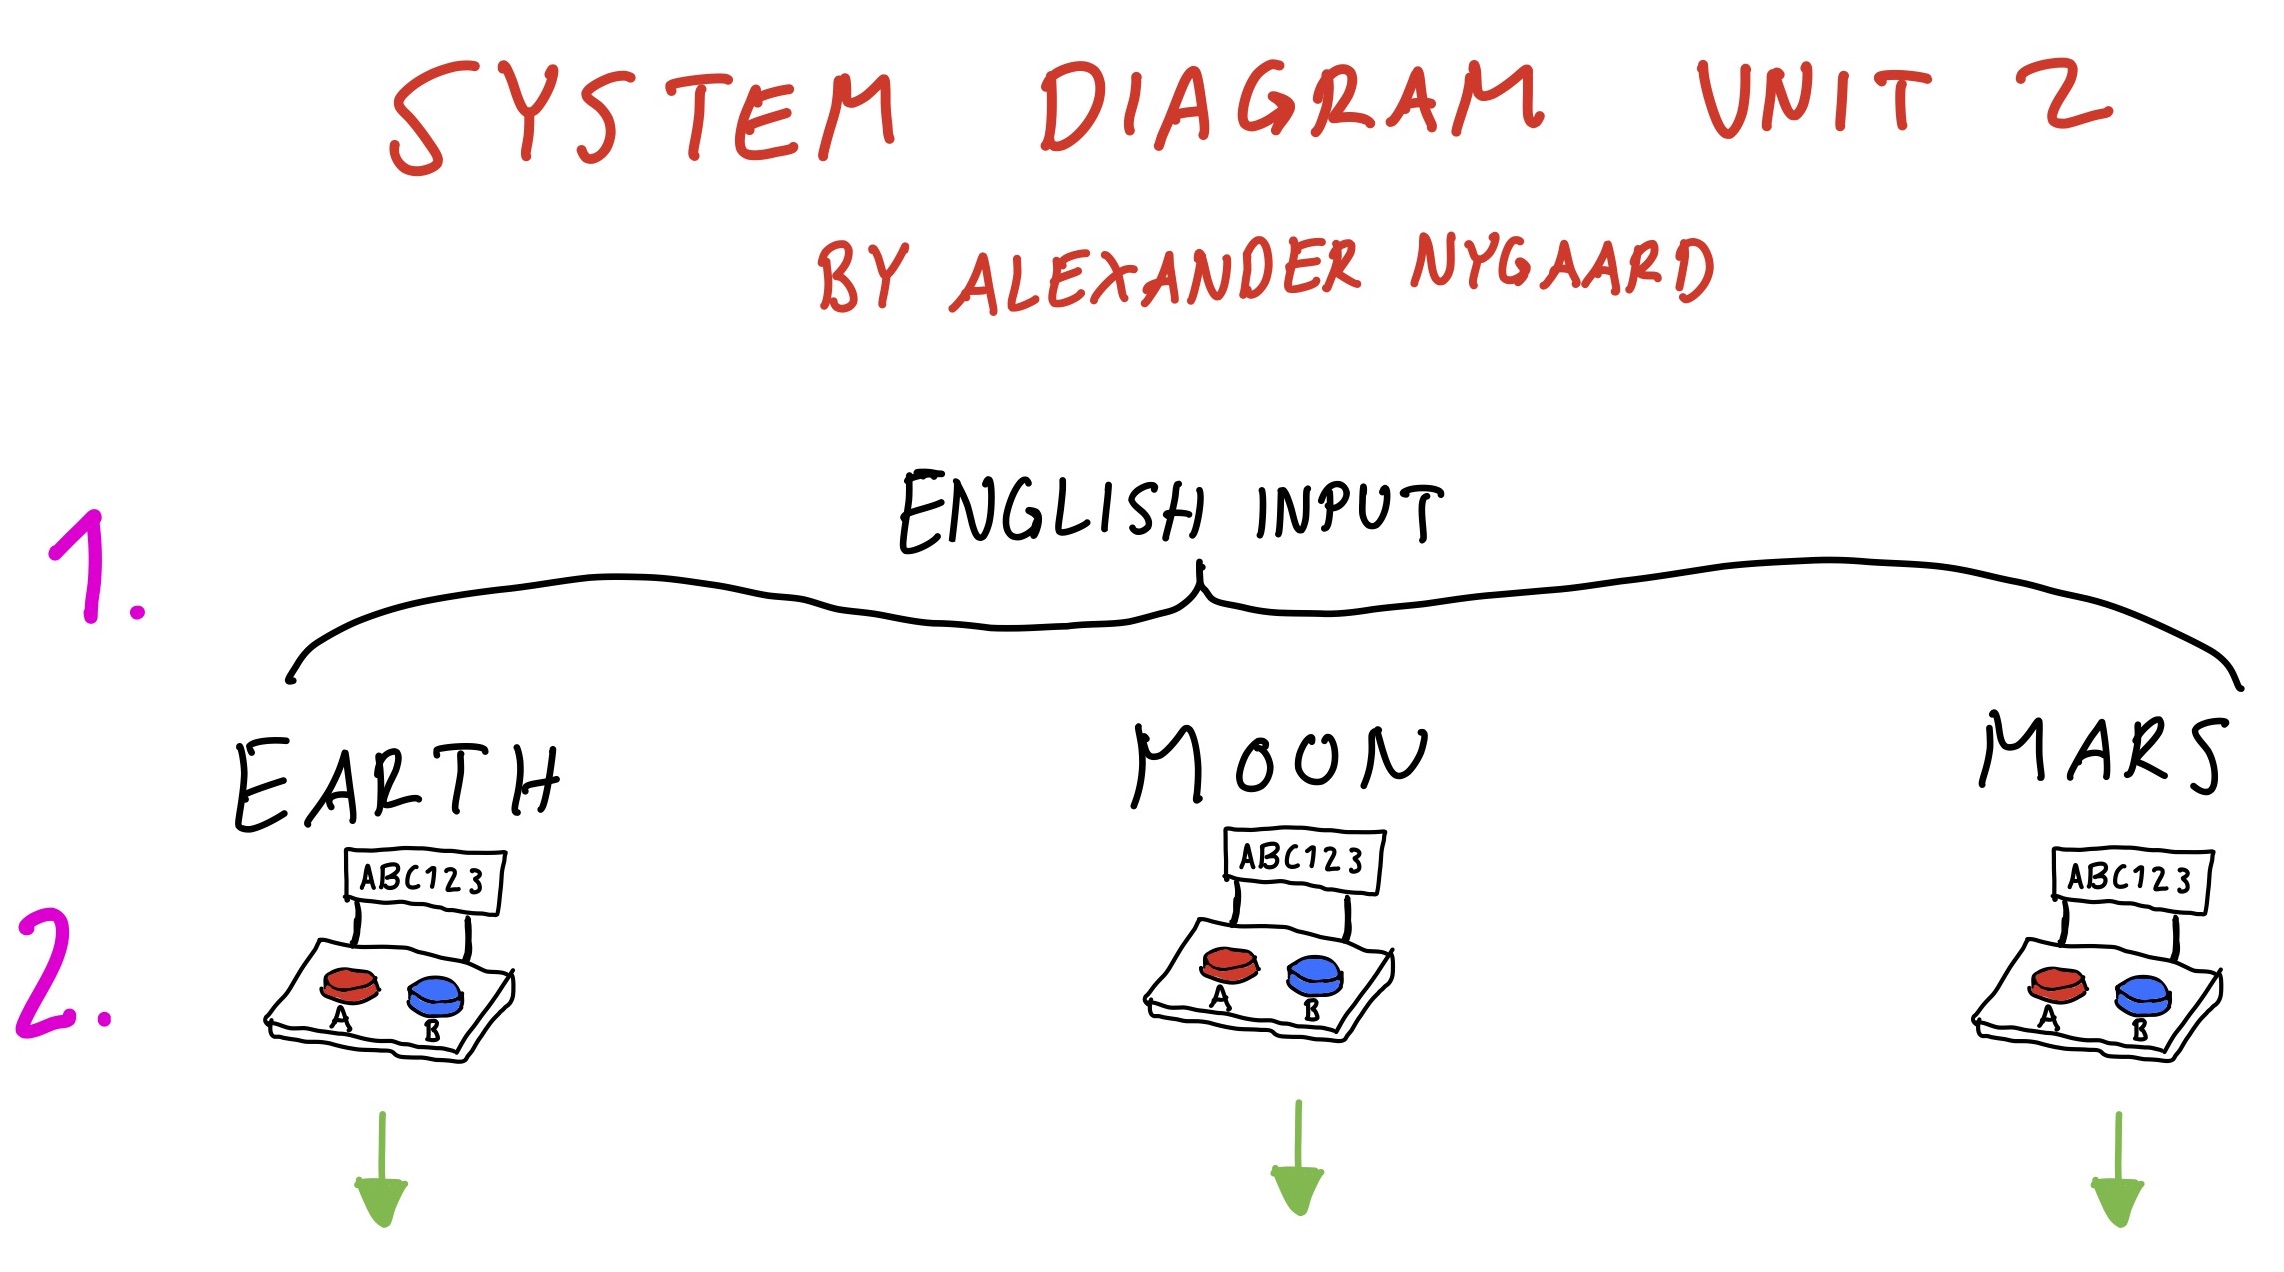 SYSTEM DIAGRAM UNIT 2
BY ALEXANDER NYGAARD
1.
ENGLISH INPUT
EARTH
MOON
MARS
2.
ABC123
A
B
ABC123
A
B
ABC123
A
B